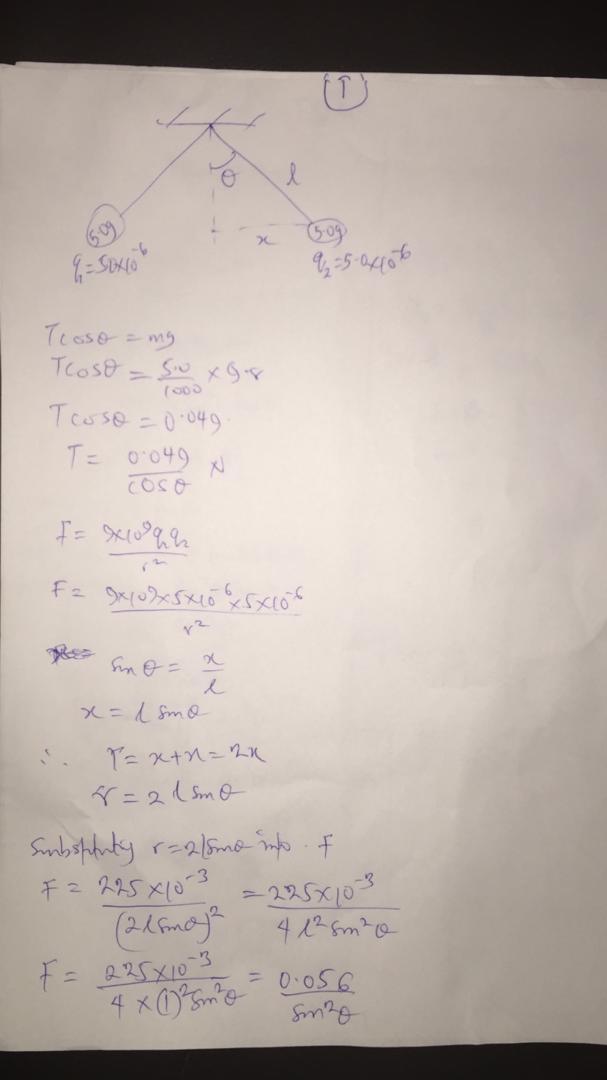 1
θ
l
5.0g
x
5.0g
q₁=5.0x10⁻⁶
q₂=5.0x10⁻⁶
Tcosθ = mg
Tcosθ = 5.0/1000 x 9.8
Tcosθ = 0.049.
T = 0.049/cosθ N
F = 9x10⁹q₁q₂/r²
F = 9x10⁹x5x10⁻⁶x5x10⁻⁶/r²
Sinθ = x/l
x = l sinθ
∴ r = x+x = 2x
r = 2 l sinθ
r=2lsinθ into F
F = 225x10⁻³/(2lsinθ)² = 225x10⁻³/4l²sin²θ
F = 225x10⁻³/4x(1)²sin²θ = 0.056/sin²θ